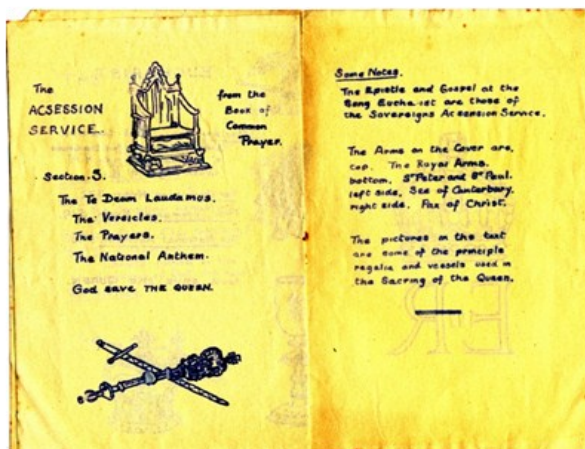 The
ACSESSION
SERVICE.
from the
Book of
Common
Prayer.
Section. 3.
The Te Deum Laudamus.
The Versicles.
The Prayers.
The National Anthem.
God save THE QUEEN.
Some Notes.
The Epistle and Gospel at the
Song Eucharist are those of
the Sovereigns Accession Service.
The Arms on the Cover are,
top. The Royal Arms.
bottom. St Peter and St Paul.
left side, See of Canterbury.
right side. Pax of Christ.
The pictures in the text
are some of the principle
regalia and vessels used in
the Sacring of the Queen.
ER